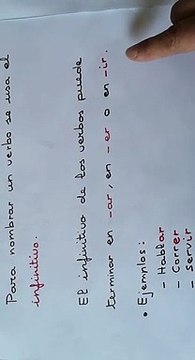 Para nombrar un verbo se usa el
infinitivo.
El infinitivo de los verbos puede
terminar en -ar, en -er o en -ir.
• Ejemplos:
- Hablar
- Correr
- Servir